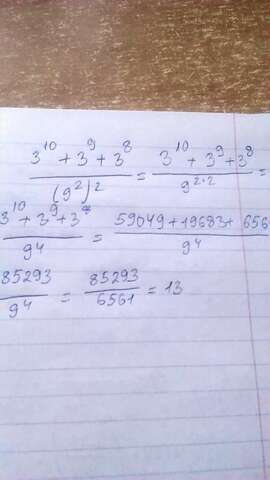 (3^10 + 3^9 + 3^8)/(9^2)^2 = (3^10 + 3^9 + 3^8)/9^(2·2) =
(3^10 + 3^9 + 3^8)/9^4 = (59049 + 19683 + 656)/9^4
85293/9^4 = 85293/6561 = 13